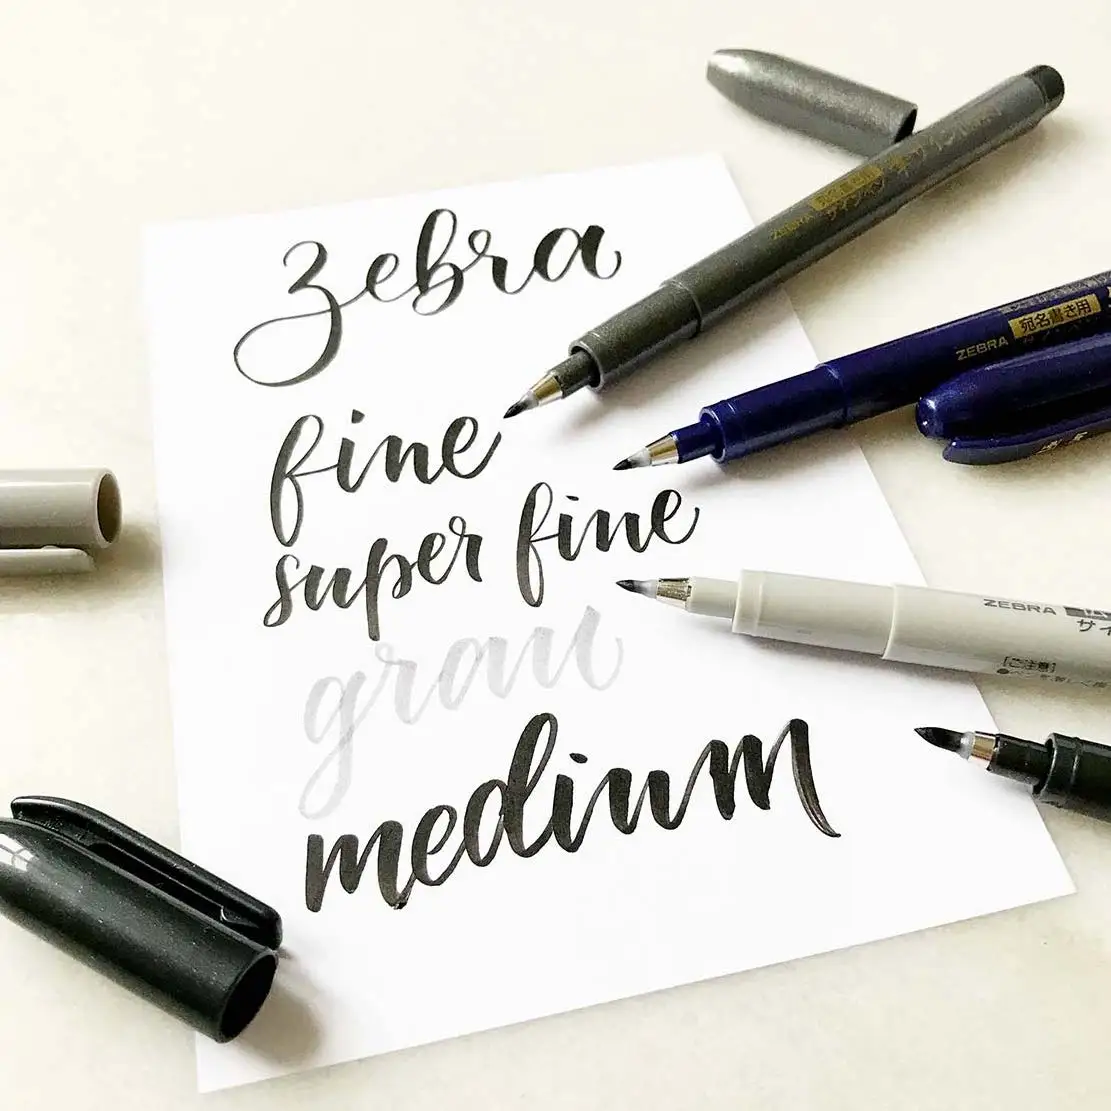 zebra
fine
super fine
grau
medium
ZEBRA
ZEBRA 宛名書き用
ZEBRA
サイ
【ご注意】